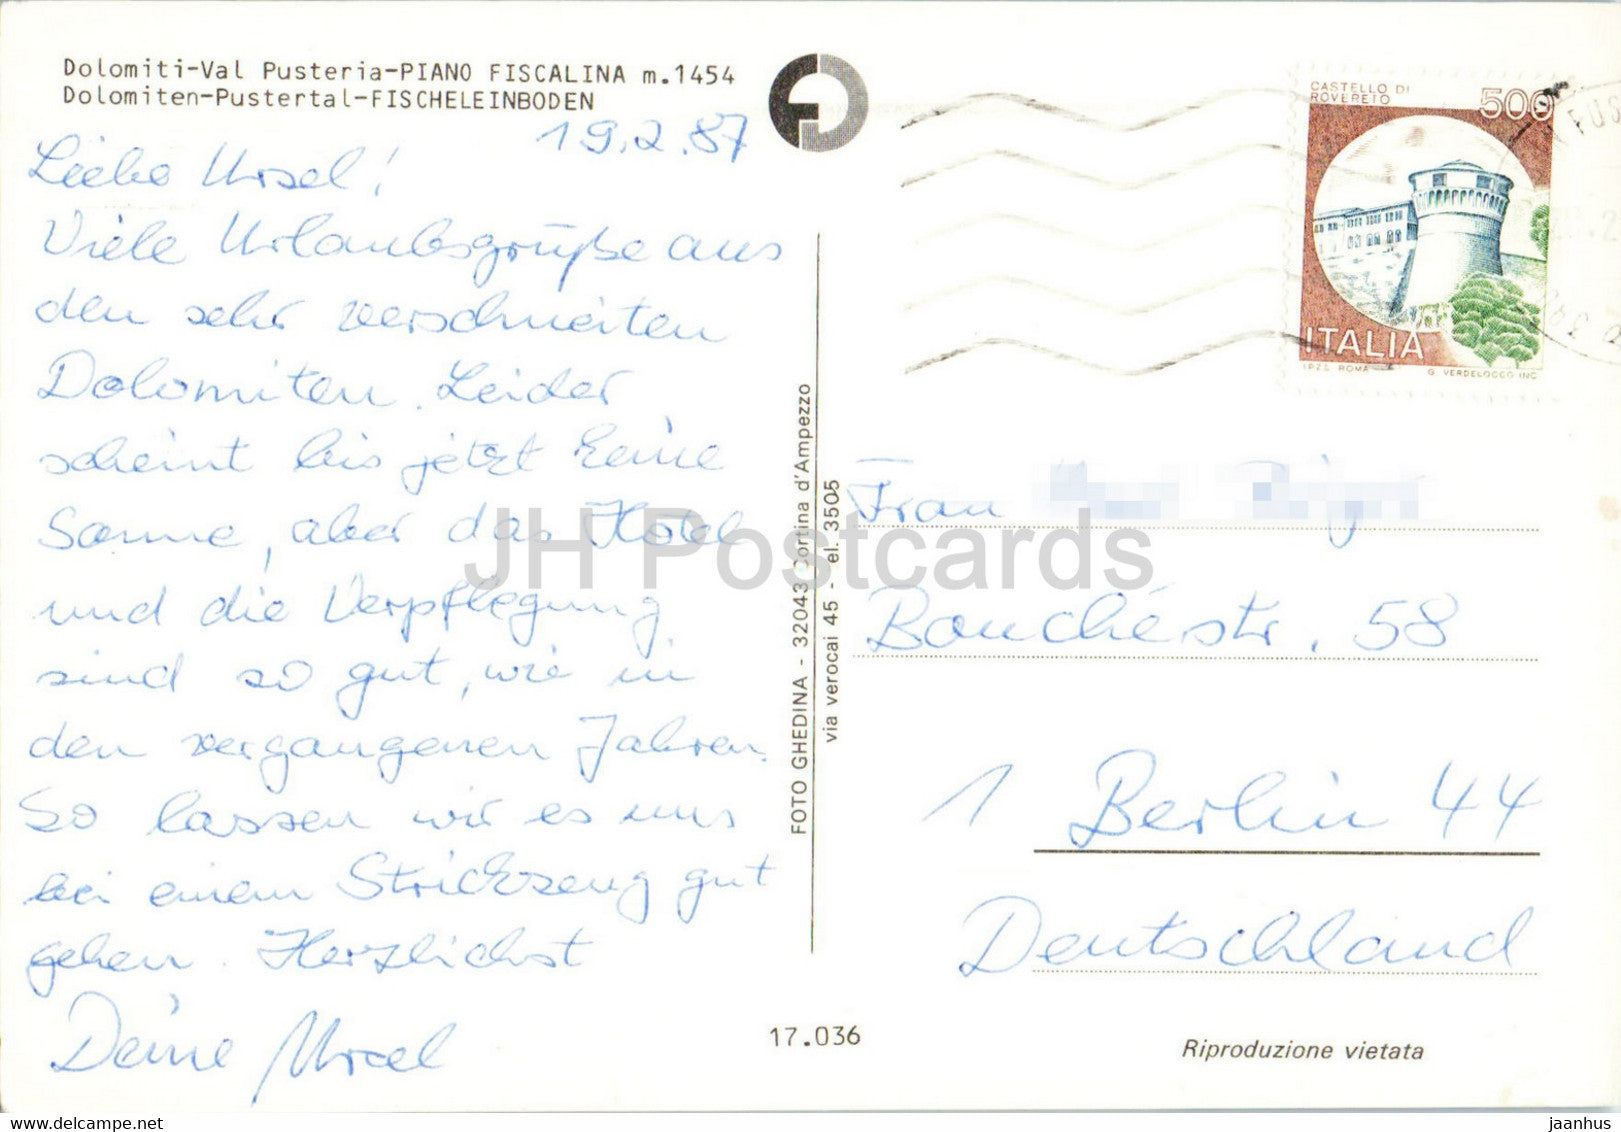 Dolomiti-Val Pusteria-PIANO FISCALINA m.1454
Dolomiten-Pustertal-FISCHELEINBODEN
19.2.87
Liebe Ursel!
Viele Urlaubsgrüße aus
den sehr verschneiten
Dolomiten. Leider
scheint bis jetzt keine
Sonne, aber das Hotel
und die Verpflegung
sind so gut, wie in
den vergangenen Jahren.
So lassen wir es uns
bei einem Strickzeug gut
gehen. Herzlichst
Deine Ursel
FOTO GHEDINA - 32043 Cortina d'Ampezzo
via verocai 45 - el. 3505
CASTELLO DI
ROVERETO
500
ITALIA
I.P.Z.S. ROMA G. VERDELOCCO INC.
Frau
Bouchéstr. 58
1 Berlin 44
Deutschland
17.036
Riproduzione vietata
JH Postcards
jaanhus